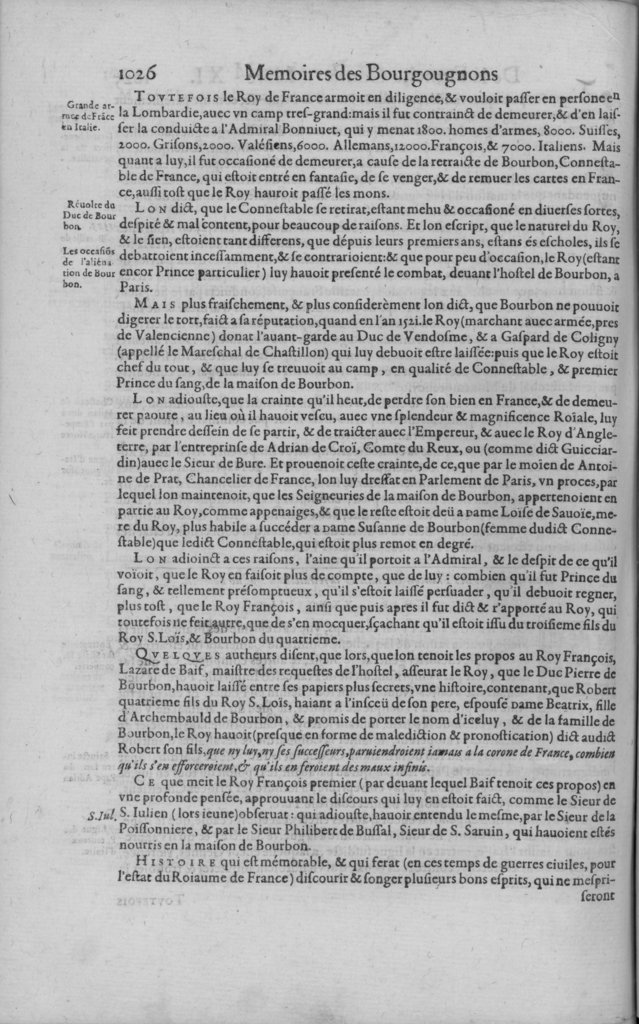 1026 Memoires des Bourgougnons
Grande ar-
mee de Frãce
en Italie.
TOVTEFOIS le Roy de France armoit en diligence,& vouloit passer en persone en
la Lombardie,auec vn camp tres-grand:mais il fut contrainct de demeurer,& d'en lais-
ser la conduicte a l'Admiral Bonniuet, qui y menat 1800. homes d'armes, 8000. Suisses,
2000. Grisons,2000. Valésiens,6000. Allemans,12000.François,& 7000. Italiens. Mais
quant a luy,il fut occasioné de demeurer,a cause de la retraicte de Bourbon,Connesta-
ble de France, qui estoit entré en fantasie, de se venger,& de remuer les cartes en Fran-
ce,aussi tost que le Roy hauroit passé les mons.
Réuolte du
Duc de Bour
bon.
Les occasiõs
de l'aliéna
tion de Bour
bon.
LON dict, que le Connestable se retirat,estant mehu & occasioné en diuerses sortes,
despité & mal content,pour beaucoup de raisons. Et lon escript, que le naturel du Roy,
& le sien, estoient tant differens, que dépuis leurs premiers ans, estans és escholes, ils se
debattoient incessamment,& se contrarioient:& que pour peu d'occasion,le Roy(estant
encor Prince particulier) luy hauoit presenté le combat, deuant l'hostel de Bourbon, a
Paris.
MAIS plus fraischement, & plus considerèment lon dict, que Bourbon ne pouuoit
digerer le tort,faict a sa réputation,quand en l'an 1521.le Roy(marchant auec armée,pres
de Valencienne) donat l'auant-garde au Duc de Vendosme, & a Gaspard de Coligny
(appellé le Mareschal de Chastillon) qui luy debuoit estre laissée:puis que le Roy estoit
chef du tout, & que luy se treuuoit au camp, en qualité de Connestable, & premier
Prince du sang,de la maison de Bourbon.
LON adiouste,que la crainte qu'il heut,de perdre son bien en France,& de demeu-
rer paoure, au lieu où il hauoit vescu, auec vne splendeur & magnificence Roïale, luy
feit prendre dessein de se partir, & de traicter auec l'Empereur, & auec le Roy d'Angle-
terre, par l'entreprinse de Adrian de Croï, Comte du Reux, ou (comme dict Guicciar-
din)auec le Sieur de Bure. Et prouenoit ceste crainte,de ce,que par le moïen de Antoi-
ne de Prat, Chancelier de France, lon luy dressat en Parlement de Paris, vn proces,par
lequel lon maintenoit, que les Seigneuries de la maison de Bourbon, appertenoient en
partie au Roy,comme appenaiges,& que le reste estoit deü a Dame Loïse de Sauoïe,me-
re du Roy, plus habile a succéder a Dame Susanne de Bourbon(femme dudict Conne-
stable)que ledict Connestable,qui estoit plus remot en degré.
LON adioinct a ces raisons, l'aine qu'il portoit a l'Admiral, & le despit de ce qu'il
voïoit, que le Roy en faisoit plus de compte, que de luy : combien qu'il fut Prince du
sang, & tellement présomptueux, qu'il s'estoit laissé persuader, qu'il debuoit regner,
plus tost, que le Roy François, ainsi que puis apres il fut dict & r'apporté au Roy, qui
toutefois ne feit autre,que de s'en mocquer,sçachant qu'il estoit issu du troisieme fils du
Roy S.Loïs,& Bourbon du quatrieme.
QVELQVES autheurs disent,que lors,que lon tenoit les propos au Roy François,
Lazare de Baif, maistre des requestes de l'hostel, asseurat le Roy, que le Duc Pierre de
Bourbon,hauoit laissé entre ses papiers plus secrets,vne histoire,contenant,que Robert
quatrieme fils du Roy S.Loïs, haiant a l'insceü de son pere, espousé Dame Beatrix, fille
d'Archembauld de Bourbon, & promis de porter le nom d'iceluy, & de la famille de
Bourbon,le Roy hauoit(presque en forme de malediction & pronostication) dict audict
Robert son fils,que ny luy,ny ses successeurs,paruiendroient iamais a la corone de France,combien
qu'ils s'en efforceroient,& qu'ils en feroient des maux infinis.
CE que meit le Roy François premier (par deuant lequel Baif tenoit ces propos) en
vne profonde pensée, approuuant le discours qui luy en estoit faict, comme le Sieur de
S.Iul. S. Iulien (lors ieune)obseruat : qui adiouste,hauoir entendu le mesme,par le Sieur de la
Poissonniere, & par le Sieur Philibert de Bussal, Sieur de S. Saruin, qui hauoient estés
nourris en la maison de Bourbon.
HISTOIRE qui est mémorable, & qui ferat (en ces temps de guerres ciuiles, pour
l'estat du Roiaume de France) discourir & songer plusieurs bons esprits, qui ne mespri-
seront